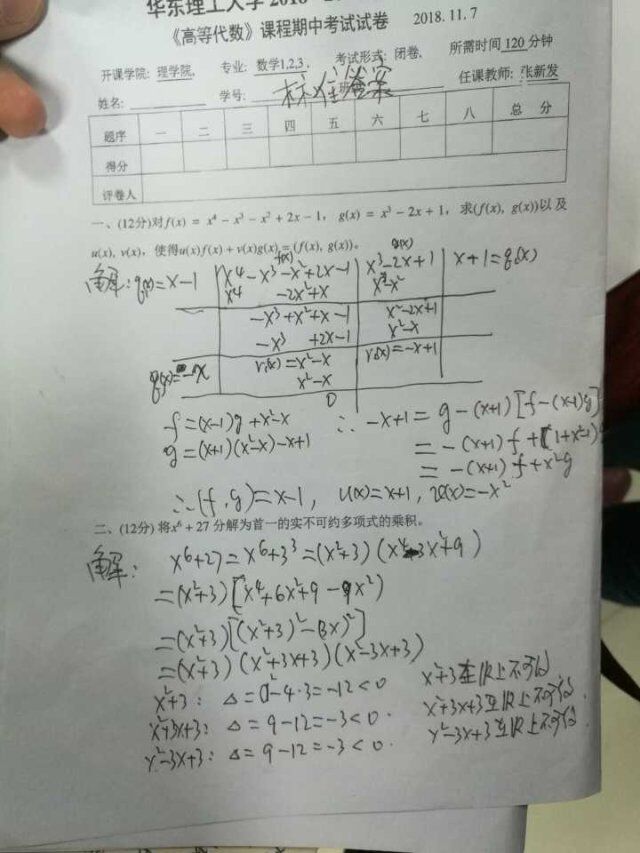 华东理工大学 2018
《高等代数》课程期中考试试卷 2018.11.7
开课学院: 理学院, 专业: 数学1,2,3, 考试形式: 闭卷, 所需时间 120 分钟
姓名: 学号: 标准答案 班 任课教师: 张新发
题序 一 二 三 四 五 六 七 八 总 分
得分
评卷人
一、(12分)对f(x) = x⁴ − x³ − x² + 2x − 1, g(x) = x³ − 2x + 1, 求(f(x), g(x))以及
u(x), v(x), 使得u(x)f(x) + v(x)g(x) = (f(x), g(x))。
f(x) g(x)
解: q₁(x)=x−1 x⁴−x³−x²+2x−1 x³−2x+1 x+1=q₂(x)
x⁴ −2x²+x x³−x²
−x³+x²+x−1 x²−2x+1
−x³ +2x−1 x²−x
q₃(x)=−x r₁(x)=x²−x r₂(x)=−x+1
x²−x
0
f=(x−1)g+x²−x ∴ −x+1=g−(x+1)[f−(x−1)g]
g=(x+1)(x²−x)−x+1 =−(x+1)f+(1+x²−1)g
=−(x+1)f+x²g
∴(f,g)=x−1, u(x)=x+1, v(x)=−x²
二、(12分) 将x⁶ + 27 分解为首一的实不可约多项式的乘积。
解: x⁶+27=x⁶+3³=(x²+3)(x⁴−3x²+9)
=(x²+3)[x⁴+6x²+9−9x²)
=(x²+3)[(x²+3)²−(3x)²]
=(x²+3)(x²+3x+3)(x²−3x+3)
x²+3: Δ=0²−4·3=−12<0 x²+3在ℝ上不可约
x²+3x+3: Δ=9−12=−3<0. x²+3x+3在ℝ上不可约.
x²−3x+3: Δ=9−12=−3<0. x²−3x+3在ℝ上不可约.